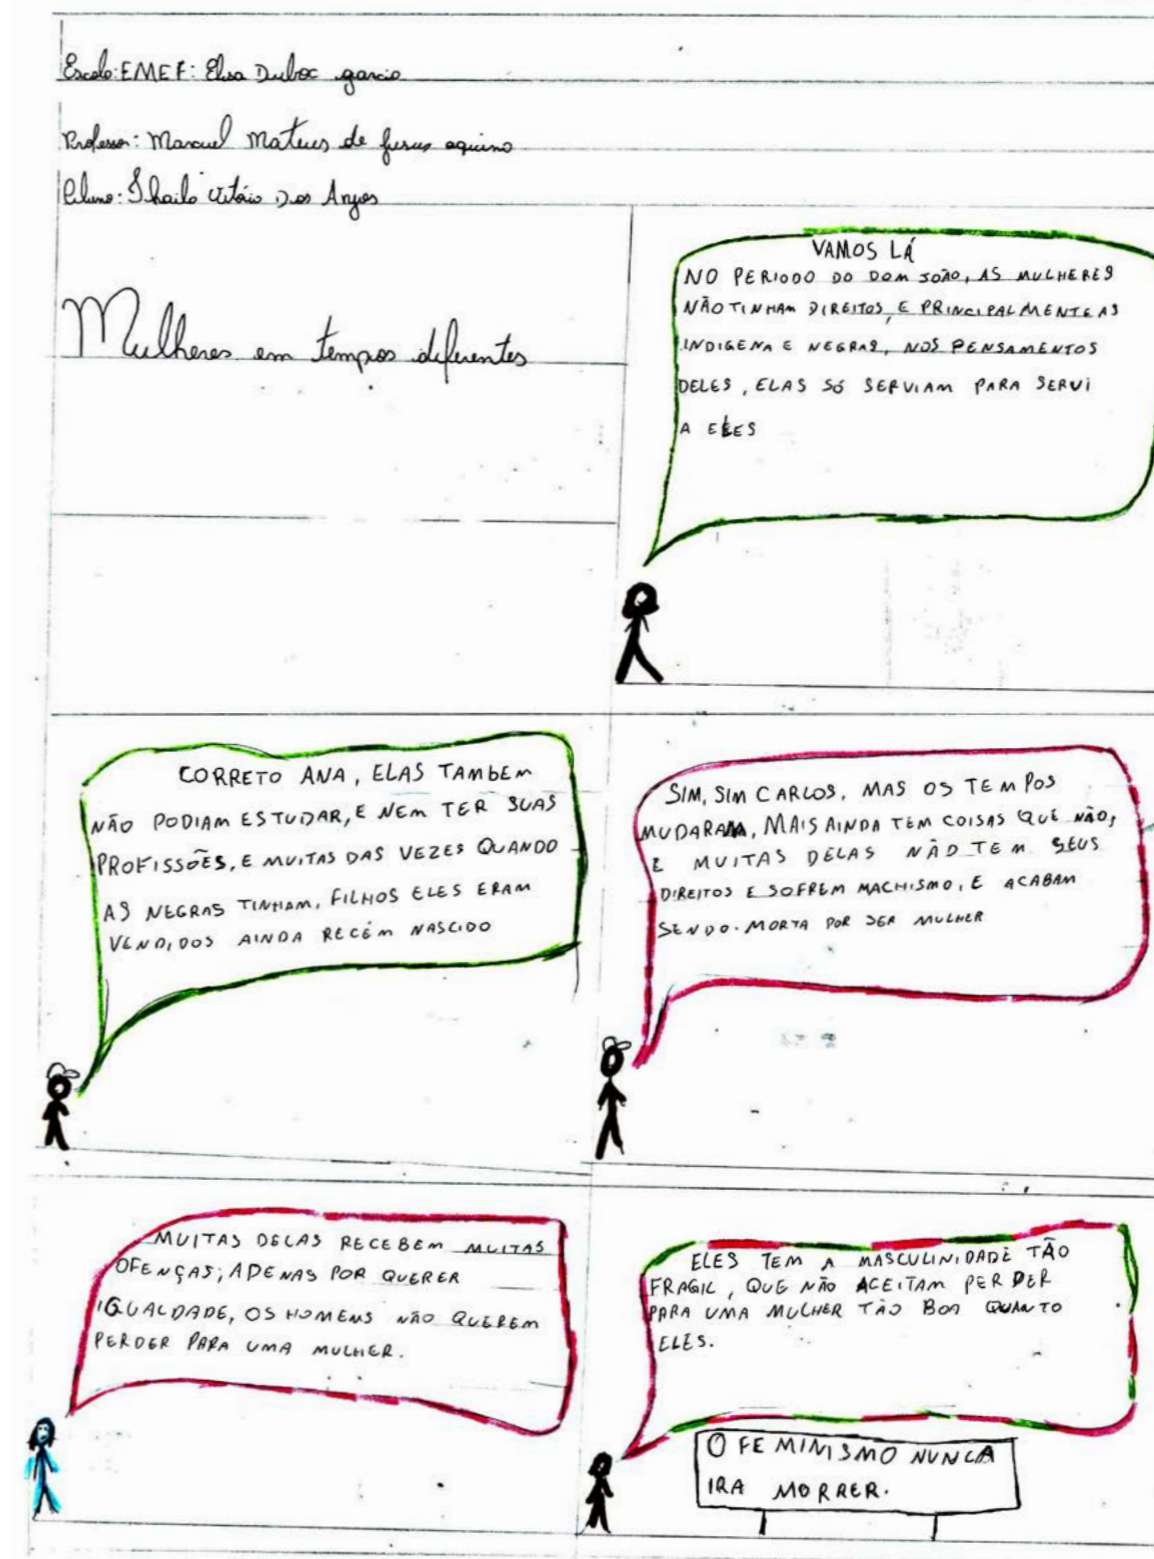 Escola: EMEF: Elisa Duboc garcia
Professor: Manuel Mateus de Jesus aquino
Aluno: Vitório Dos Anjos
Mulheres em tempos diferentes
VAMOS LÁ
NO PERIODO DO DOM JOÃO, AS MULHERES
NÃO TINHAM DIREITOS, E PRINCIPALMENTE AS
INDIGENA E NEGRAS, NOS PENSAMENTOS
DELES, ELAS SÓ SERVIAM PARA SERVI
A ELES
CORRETO ANA, ELAS TAMBEM
NÃO PODIAM ESTUDAR, E NEM TER SUAS
PROFISSÕES, E MUITAS DAS VEZES QUANDO
AS NEGRAS TINHAM, FILHOS ELES ERAM
VENDIDOS AINDA RECÉM NASCIDO
SIM, SIM CARLOS, MAS OS TEMPOS
MUDARAM, MAIS AINDA TEM COISAS QUE NÃO,
E MUITAS DELAS NÃO TEM SEUS
DIREITOS E SOFREM MACHISMO, E ACABAM
SENDO. MORTA POR SER MULHER
MUITAS DELAS RECEBEM MUITAS
OFENÇAS; APENAS POR QUERER
IGUALDADE, OS HOMENS NÃO QUEREM
PERDER PARA UMA MULHER.
ELES TEM A MASCULINIDADE TÃO
FRAGIL, QUE NÃO ACEITAM PERDER
PARA UMA MULHER TÃO BOA QUANTO
ELES.
O FEMINISMO NUNCA
IRA MORRER.